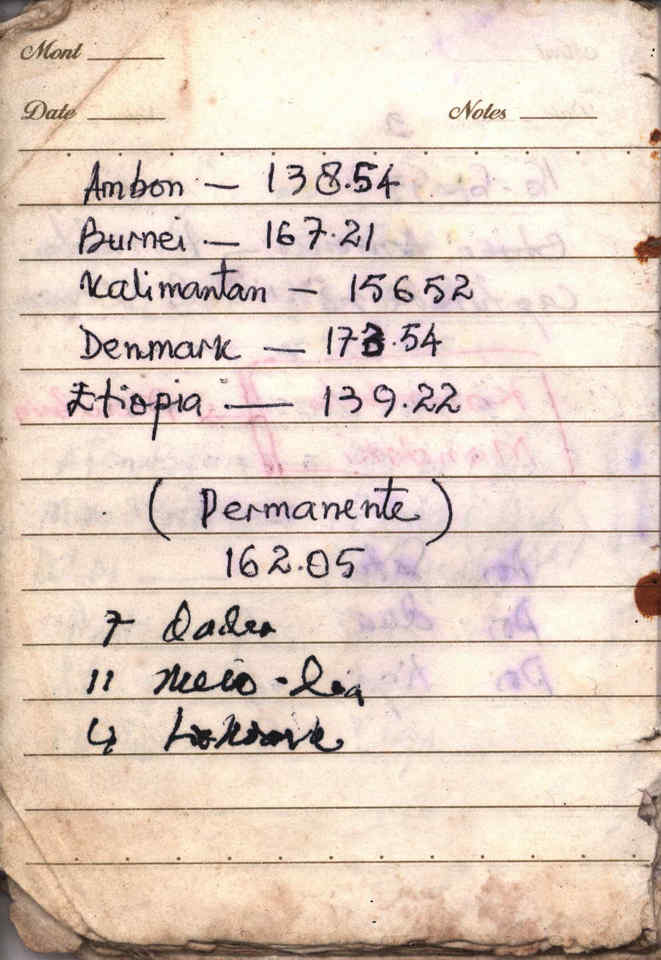 Mont
Date
Notes
Ambon — 138.54
Burnei — 167.21
Kalimantan — 15652
Denmark — 173.54
Etiopia — 139.22
(Permanente)
162.05
7
11 meio-dia
4